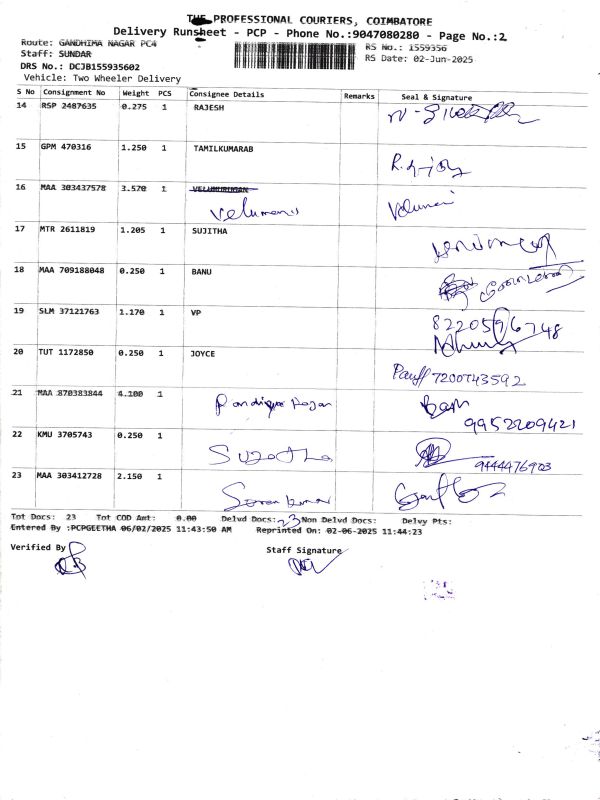 THE PROFESSIONAL COURIERS, COIMBATORE
Delivery Runsheet - PCP - Phone No.:9047080280 - Page No.:2
Route: GANDHIMA NAGAR PC4
RS No.: 1559356
Staff: SUNDAR
RS Date: 02-Jun-2025
DRS No.: DCJB155935602
Vehicle: Two Wheeler Delivery
S No Consignment No Weight PCS Consignee Details Remarks Seal & Signature
14 RSP 2487635 0.275 1 RAJESH
15 GPM 470316 1.250 1 TAMILKUMARAB
16 MAA 303437578 3.570 1 VELUMURUGAN
Velumani
17 MTR 2611819 1.205 1 SUJITHA
18 MAA 709188048 0.250 1 BANU
19 SLM 37121763 1.170 1 VP
8220596748
20 TUT 1172850 0.250 1 JOYCE
7200743592
21 MAA 870383844 4.100 1
9952209421
22 KMU 3705743 0.250 1 Sujatha
9444476903
23 MAA 303412728 2.150 1 Saran kumar
Tot Docs: 23 Tot COD Amt: 0.00 Delvd Docs: 23 Non Delvd Docs: Delvy Pts:
Entered By :PCPGEETHA 06/02/2025 11:43:50 AM Reprinted On: 02-06-2025 11:44:23
Verified By
Staff Signature